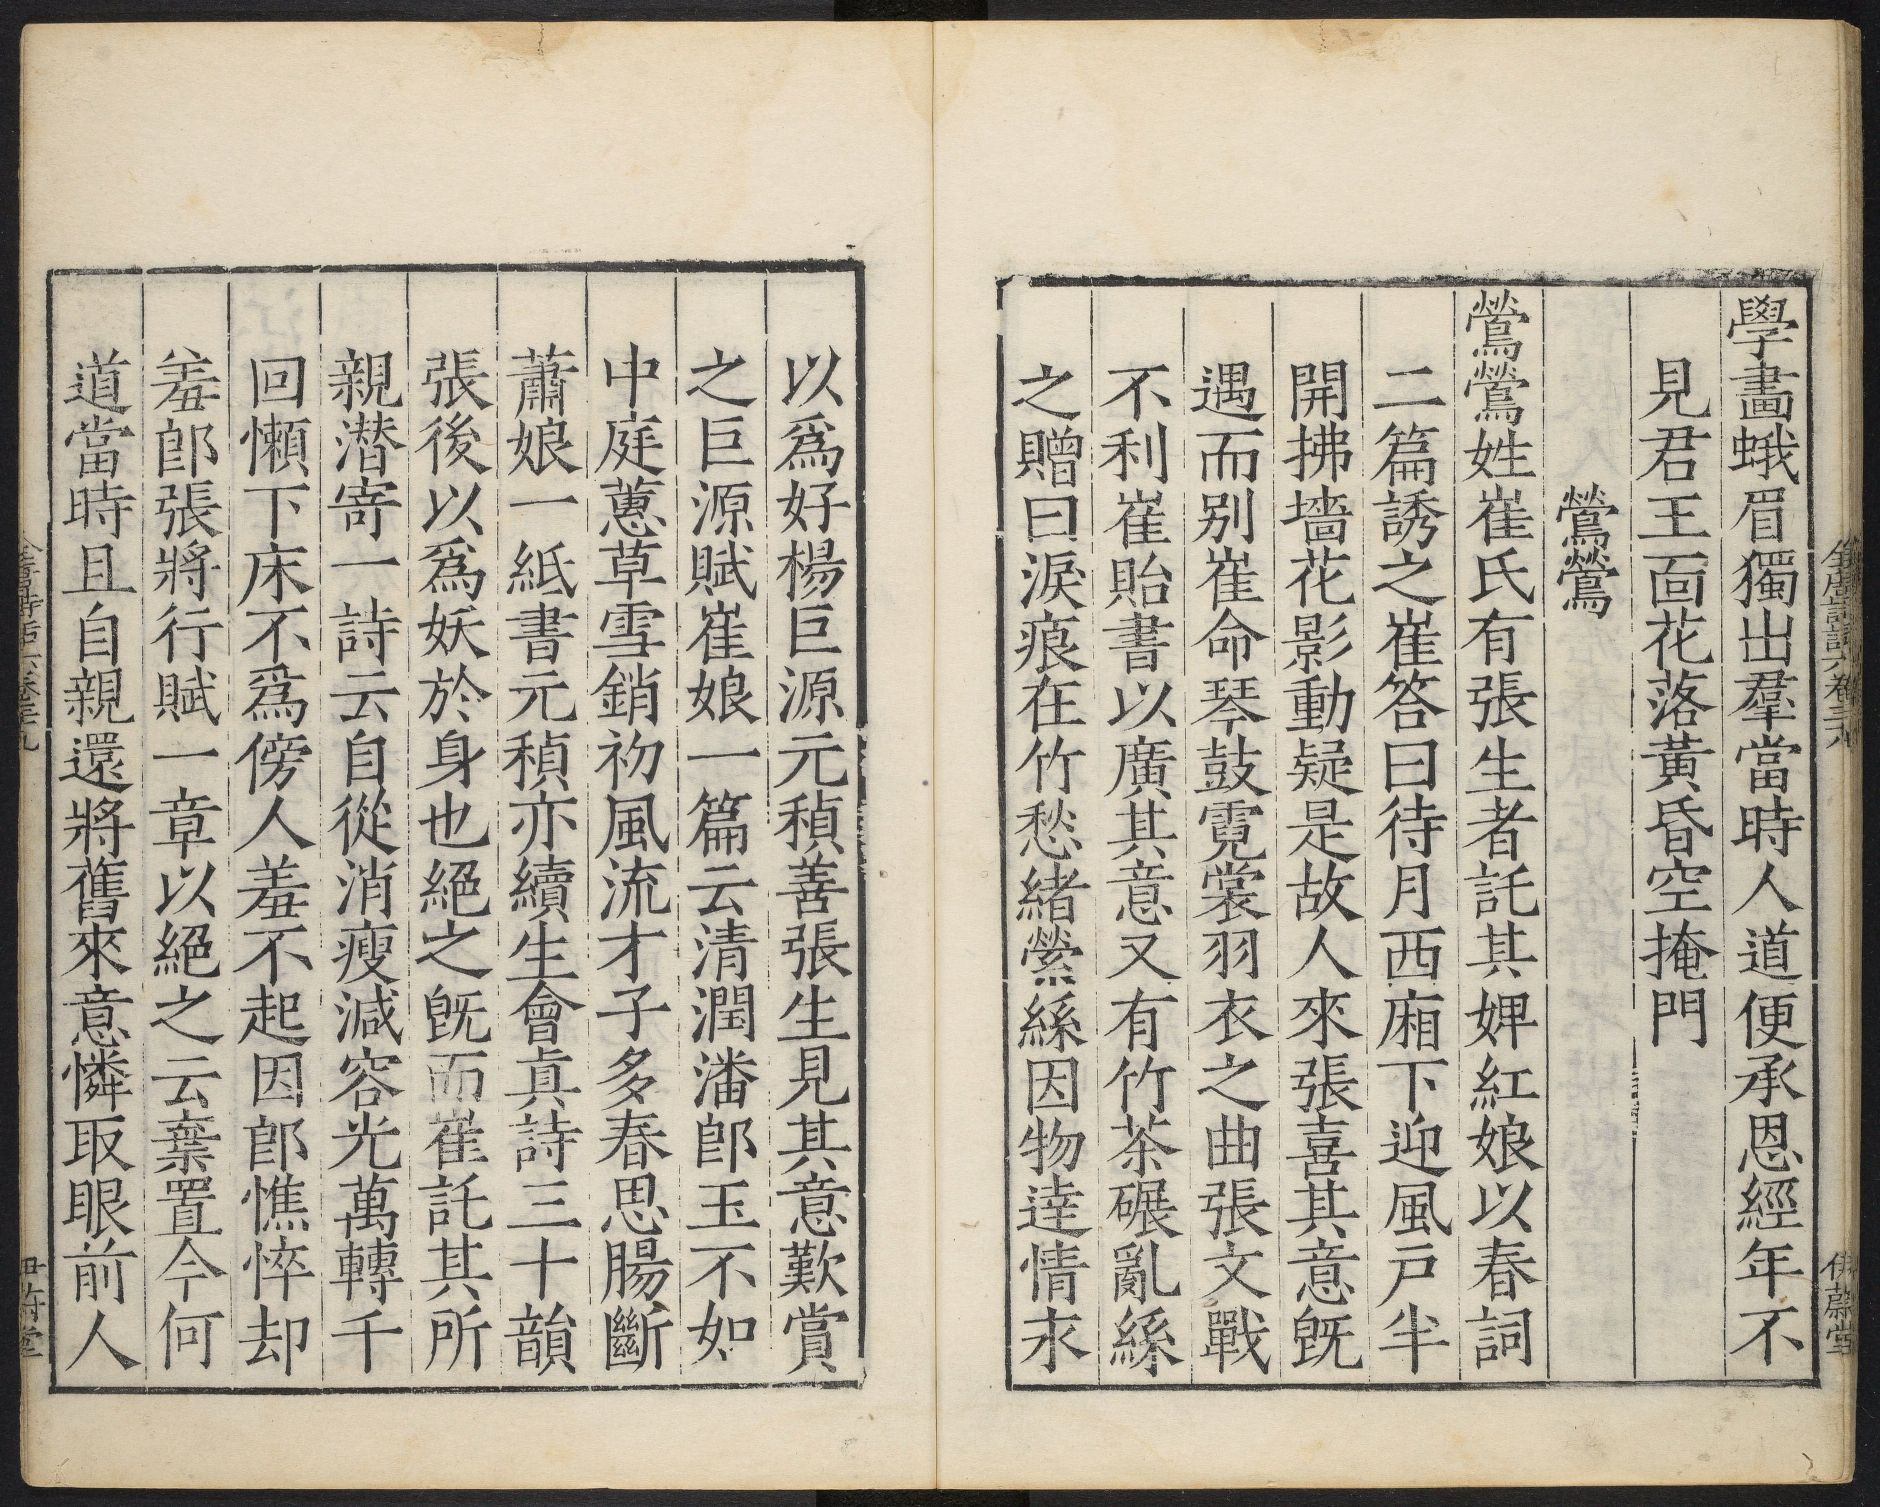 學畫蛾眉獨出羣當時人道便承恩經年不
見君王面花落黃昏空掩門
鶯鶯
鶯鶯姓崔氏有張生者託其婢紅娘以春詞
二篇誘之崔答曰待月西廂下迎風戶半
開拂墻花影動疑是故人來張喜其意旣
遇而别崔命琴鼓霓裳羽衣之曲張文戰
不利崔貽書以廣其意又有竹茶碾亂絲
之贈曰淚痕在竹愁緒縈絲因物達情求
以爲好楊巨源元稹善張生見其意歎賞
之巨源賦崔娘一篇云清潤潘郎玉不如
中庭蕙草雪銷初風流才子多春思腸斷
蕭娘一紙書元稹亦續生會真詩三十韻
張後以爲妖於身也絕之旣而崔託其所
親潜寄一詩云自從消瘦減容光萬轉千
回懶下床不爲傍人羞不起因郎憔悴却
羞郎張將行賦一章以絕之云棄置今何
道當時且自親還將舊來意憐取眼前人